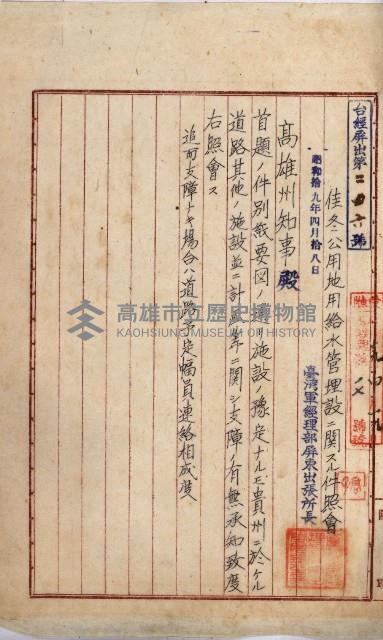 台經屏出第二四六號
佳冬公用地用給水管埋設ニ関スル件照會
昭和拾九年四月拾八日
臺灣軍經理部屏東出張所長
高雄州知事殿
首題ノ件別紙要図ノ通施設ノ豫定ナルモ貴州ニ於ケル
道路其他ノ施設並ニ計画等ニ関シ支障ノ有無承知致度
右照會ス
追而支障ナキ場合ハ道路予定幅員ノ連絡相成度
高雄市立歷史博物館
KAOHSIUNG MUSEUM OF HISTORY